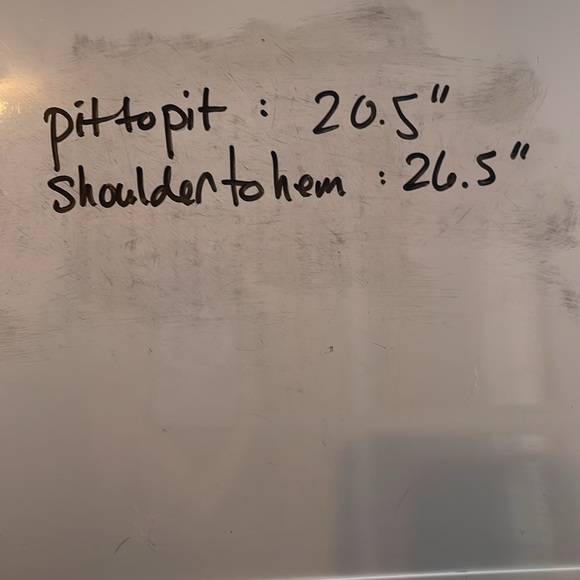 pit to pit : 20.5"
shoulder to hem : 26.5"